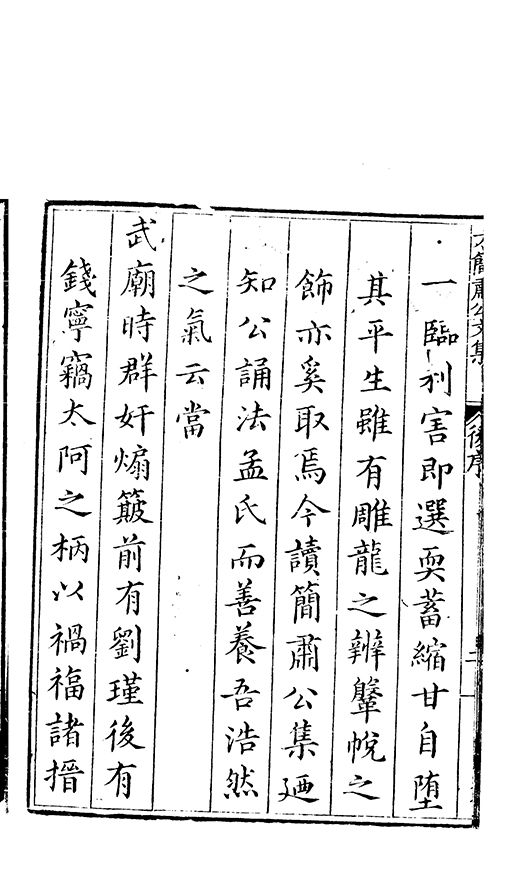 簡肅公文集
後序
一臨利害即選耎蓄縮甘自堕
其平生雖有雕龍之辨鞶帨之
飾亦奚取焉今讀簡肅公集廼
知公誦法孟氏而善養吾浩然
之氣云當
武廟時群奸煽簸前有劉瑾後有
錢寧竊太阿之柄以禍福諸搢